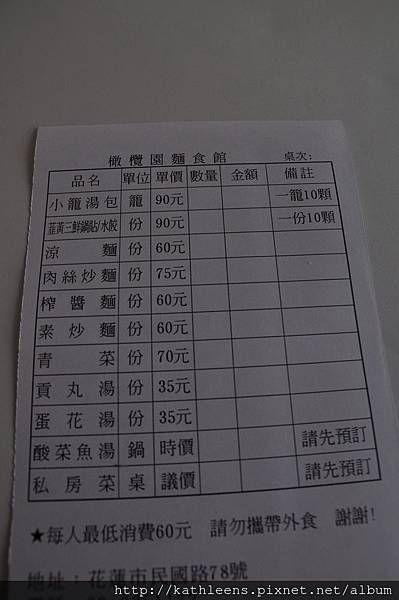 橄欖園麵食館 桌次:
品名 單位 單價 數量 金額 備註
小籠湯包 籠 90元 一籠10顆
韮黃三鮮鍋貼/水餃 份 90元 一份10顆
涼麵 份 60元
肉絲炒麵 份 75元
榨醬麵 份 60元
素炒麵 份 60元
青菜 份 70元
貢丸湯 份 35元
蛋花湯 份 35元
酸菜魚湯 鍋 時價 請先預訂
私房菜 桌 議價 請先預訂
★每人最低消費60元 請勿攜帶外食 謝謝!
地址:花蓮市民國路78號
http://kathleens.pixnet.net/album